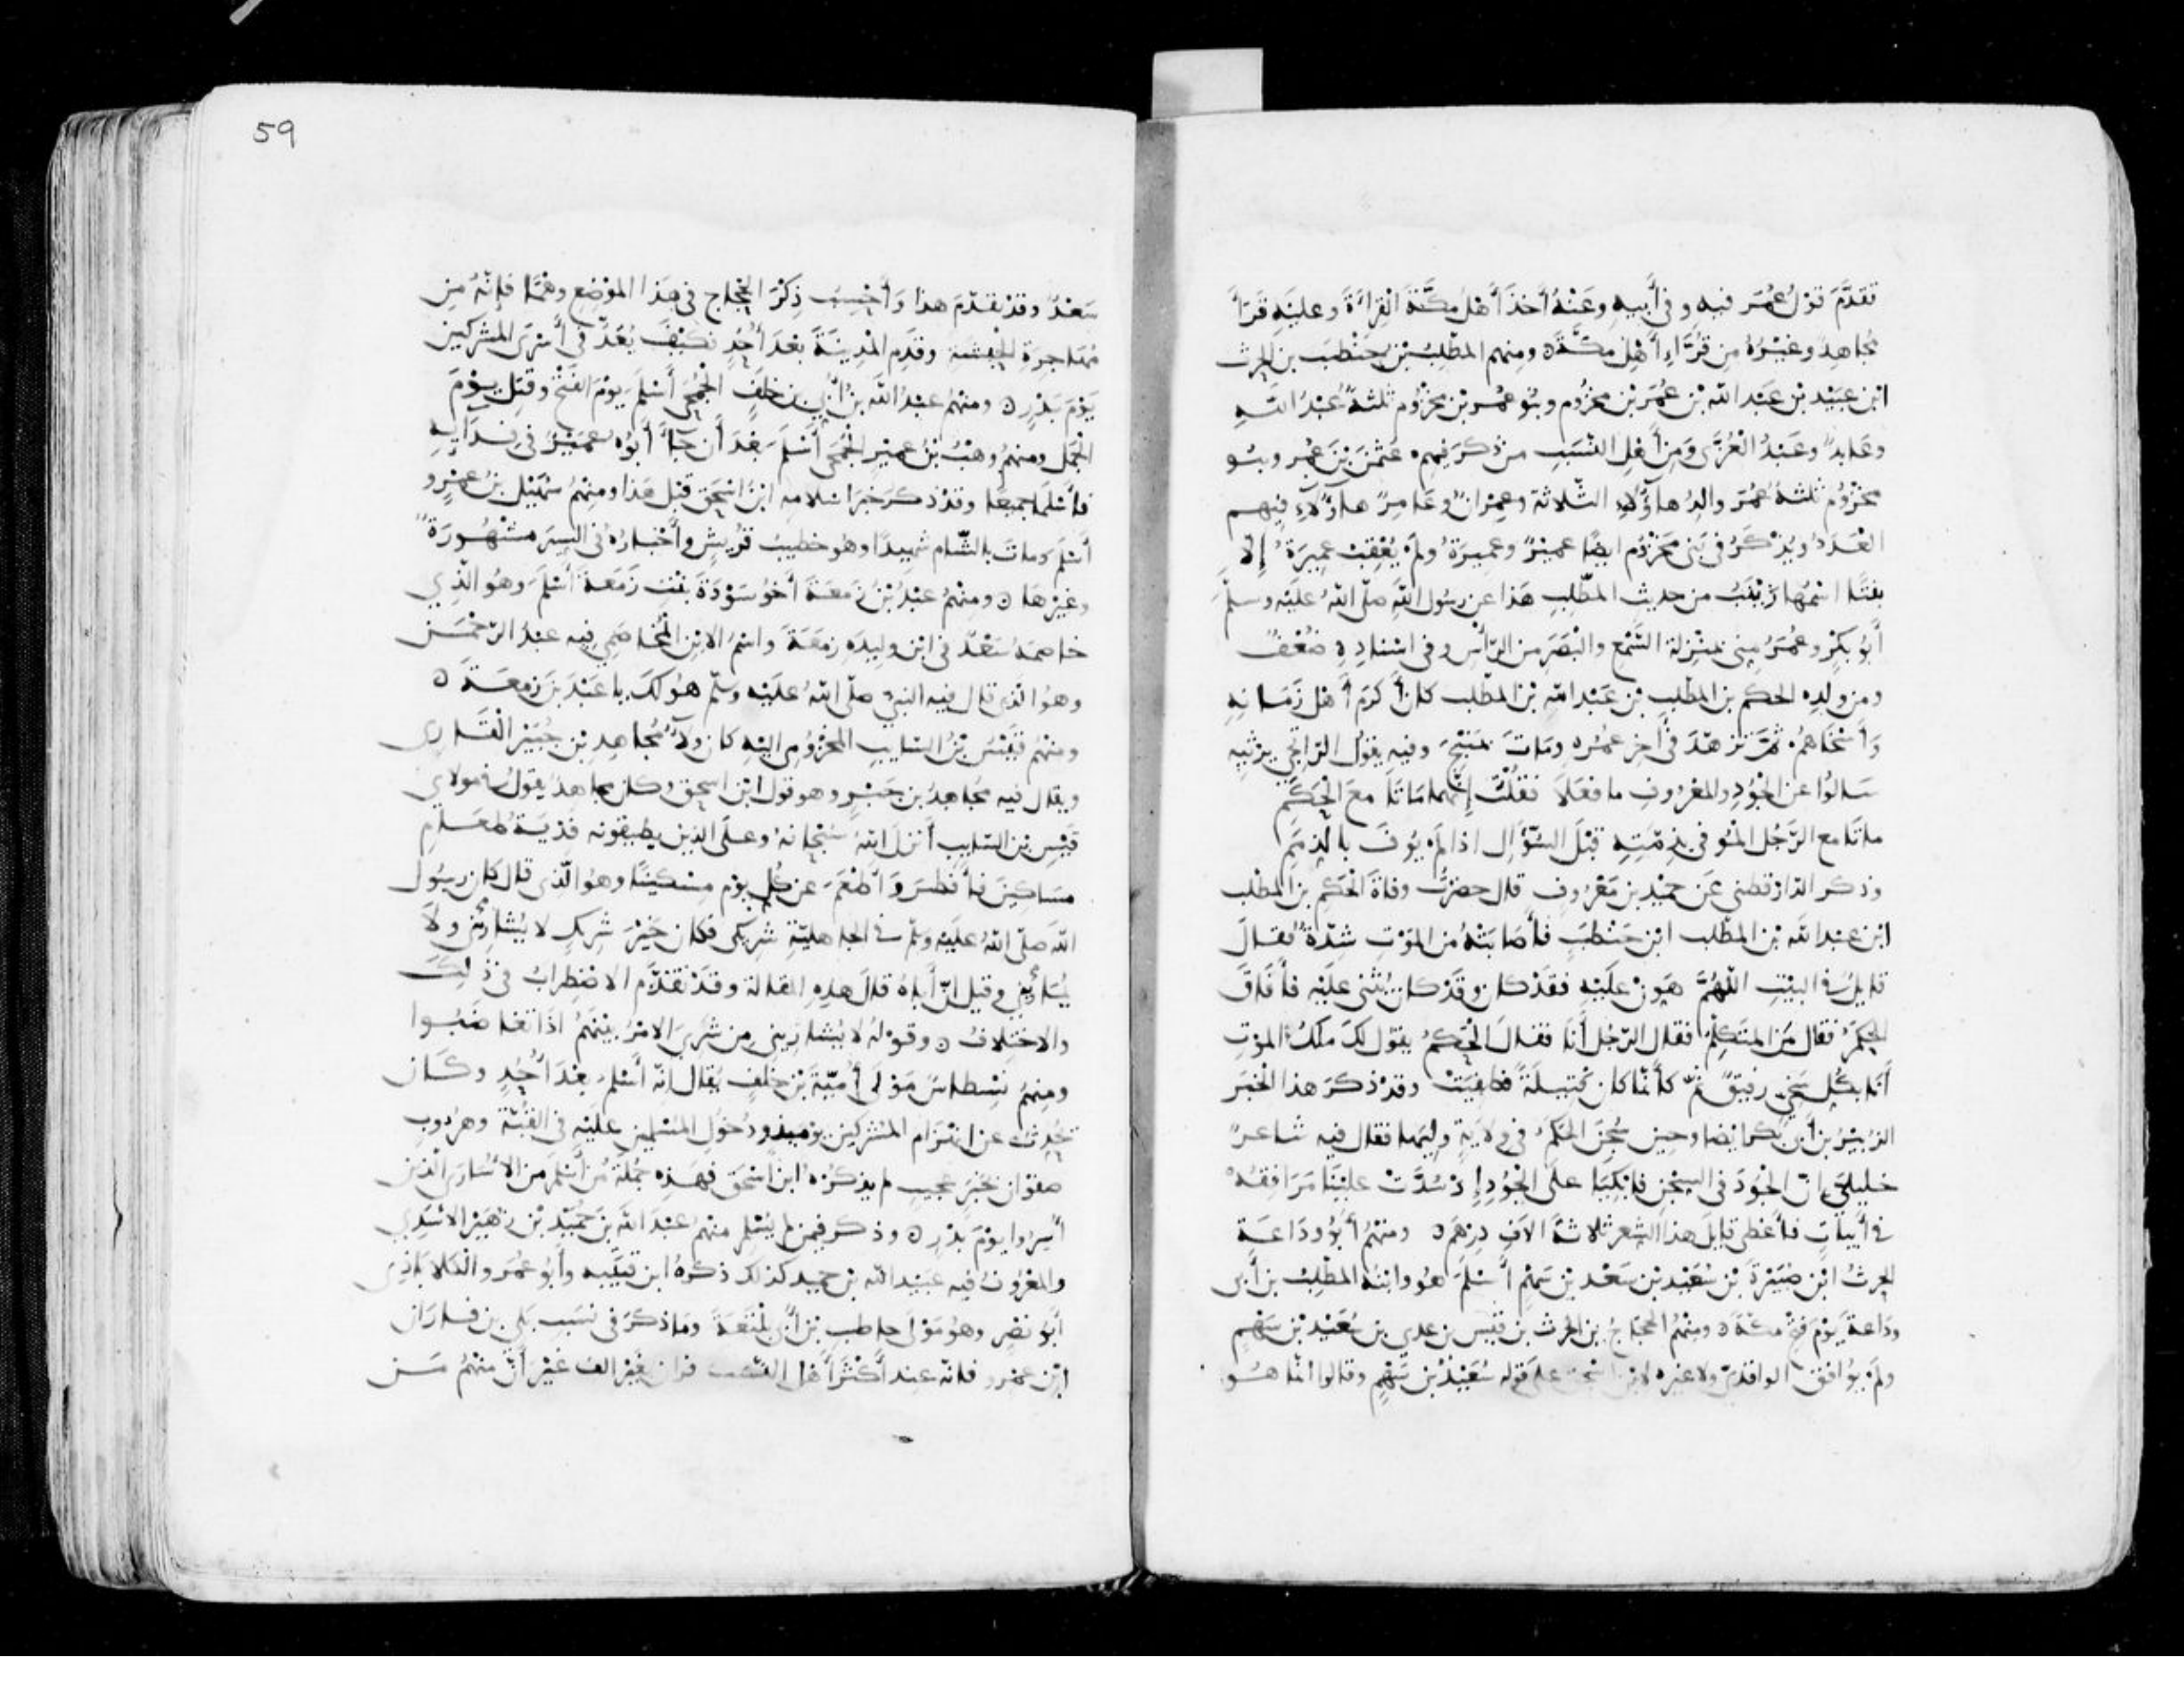 تقدَّمَ قولُ عُمَر فيه وفي أَبيهِ وعَنْهُ أخذَ أَهْلُ مكَّةَ القِراءَةَ وعليْهِ قَرَأَ
مُجاهِدٌ وغيْرُهُ مِن قُرَّاءِ أَهْلِ مكَّةَ ٥ ومنهم المطَّلِبُ بْن حَنْطَب بن الحرث
ابن عبَيْد بن عَبدالله بن عُمَر بْن مخزُوم وبنُو عُمر بن مخْزُوم ثلثةٌ عُبْدُ اللهِ
وعَابدٌ وعَبْدُ الْعُزَّى وَمِنْ أَهْلِ النَّسَبِ من ذكرَ فيهم عثمنَ بْنَ عُمر وبنُو
مخْزُوم ثلثةٌ عُمَرُ والِدُ هاؤُلاءِ الثّلاثة وعِمْرانُ وعَامِرٌ هاؤُلآءِ فيهم
العَدَدُ ويُذْكَرُ في بَنى مخزُوم ايضًا عمِيْرٌ وعَمِيرَةُ ولَمْ يُعْقِبْ عمِيرَةُ إِلّا
بنتًا اسْمُها زيْنَبُ من حديث المطّلب هَذا عن رسُول اللهِ صلّى اللهُ علَيْه وسلّمَ
أَبُو بكْرٍ وعُمَرُ مِنى بمنْزِلة السَّمْع والبَصَر من الرّأْسِ وفى اسْنادِهِ ضعْفٌ
ومن ولَدِه الحكَم بن المطّلب بْن عَبْدِ اللهِ بْن المطّلب كانَ أَكرَمَ أَهْل زَمَانِهِ
وَأَسْخَاهُمْ ثمّ تزَهّدَ فى أخِرِ عمْرِه ومَاتَ بمَنْبِجَ وفيه يقُولُ الرّاتِجي يرْثيهِ
سَالُوا عن الجُوْدِ والمعْرُوفِ ما فعَلَا فقُلْتُ إِنَّهما مَاتَا معَ الْحَكَمِ
ماتَا مع الرّجُلِ المُوفى بذِمَّتِهِ قبْلَ السّؤَالِ اذا لَمْ يُوفَ بالذِمَمِ
وذكر الدّارقطنى عَن حمَيْد بن مَعْرُوفٍ قال حضرْتُ وفاةَ الحَكَم بن المطّلب
ابن عبْدالله بْن المطّلب ابن حَنْطَبٍ فأَصابَتْهُ من المَوْتِ شدّةٌ فقالَ
قايلٌ فى البيْتِ اللّهُمَّ هَوِّنْ علَيْهِ فقَدْ كان وقَدْ كان يُثنى علَيْهِ فأَفَاقَ
الحكَمُ فقال مَن المتَكلّمُ فقال الرّجُل أَنا فقالَ الحَكَمُ يقُول لكَ ملَكُ الموْتِ
أَنا بكُلِّ سَخِىٍّ رفيقٌ ثمّ كأَنّما كان فتيلةً فطَفِيَتْ وقدْ ذكَرَ هذا الخبَرَ
الزّبيْرُ بن أَبى بكر ايضا وحين سُجِنَ الحكَمُ فى ولايَةٍ وليَها فقال فيه شاعرٌ
خليلىّ إِنّ الجُودَ فى السِجْنِ فابْكيَا علَى الْجُوْدِ إِذْ سُدَّتْ علَيْنا مَرَافقُهْ
فى أَبيَاتٍ فأَعْطى قايلَ هذا الشعر ثلاثةَ الَافِ دِرْهَم ٥ ومنْهُمْ أَبُو ودَاعَة
الحرثُ ابْن ضُبَيْرةَ بْن سُعَيْد بْن سَعْد بْن سَهْم أَسْلَمَ هُو وابْنُهُ المطّلبُ بن أَبى
ودَاعةَ يَوْمَ فتْح مكّةَ ٥ ومنْهُمُ الحجّاجُ بن الحرث بن قيْس بن عدي بن سُعَيْد بْن سَهْمٍ
ولَمْ يُوافقْ الواقدىّ ولا غيره لابن اسْحق على قوله سُعَيْدُ بْن سَهْمٍ وقالوا انّما هُو
59
سَعْدٌ وقَدْ تقدّمَ هذا وَأَحْسِبُ ذِكْرَ الحجّاج فى هَذا الموْضِعِ وهْمًا فإِنّهُ مِن
مُهَاجِرَةِ الحبشَةِ وقَدِم المدِينَةَ بَعْدَ أُحُدٍ فكيْفَ يُعَدُّ فى أَسْرَى المشركين
يَوْمَ بَدْرٍ ٥ ومنْهُمْ عبْدُ اللهِ بنُ أُبَيّ بن خلَفٍ الجُمَحى أَسْلَمَ يوْمَ الفَتْح وقُتِلَ يوْمَ
الجَمَل ومنهُمْ وهْبُ بْنُ عمَيْر الجُمَحى أَسْلَمَ بعْدَ أَن جَاءَ أَبُوْهُ عُمَيْرٌ فى فدَآيِه
فأَسْلمَا جميعًا وقَدْ ذكرَ خبَرَ اسْلامه ابْنُ اسْحق قبْل هذا ومنْهُمْ سُهَيْل بْنُ عمْرٍو
أَسْلَمَ ومَاتَ بالشّام شهيدًا وهو خطيبُ قُريْشٍ وأَخْبارُهُ فى السِيَر مشْهُورَةٌ
وغيْرِهَا ٥ ومنْهُمْ عبْدُ بْنُ زمعَة أَخُو سَوْدَة بنْتِ زَمَعَة أَسْلَمَ وهُو الّذِي
خاصمَهُ سَعْدٌ فى ابْن ولِيدَه زمَعَةَ واسْمُ الابْنِ المُخاصَمِ فيه عبْدُ الرّحْمَن
وهو الّذى قال فيه النبىُّ صلّى اللهُ علَيْه وسَلّمَ هُو لكَ يا عَبْدَ بْنَ زمعَةَ ٥
ومنْهُمْ قَيْسُ بْنُ السّايب المخْزُومى اليْهِ كان ولآءُ مُجاهدِ بْن جُبَيْر الْقَارى
ويقال فيه مُجَاهدُ بن جَبْرٍ وهو قول ابْن اسحق وكان مجاهدٌ يقُولُ فى مولاي
قَيْسِ بْن السّايب أَنزلَ اللهُ سُبْحانهُ وعلَى الذين يطيقونه فدْيَةٌ طعَام
مسَاكِينَ فأَفطَرَ وَأَطْعَمَ عن كُلِّ يوْم مِسْكِينًا وهُو الّذى قال كان رسُول
اللهِ صلّى اللهُ علَيْه وسَلّم فى الجاهليّةِ شرِيكى فكان خَيْرَ شرِيكٍ لا يُشارِيْنى ولَا
يُمَارِيْنى وقيل انّ أَباهُ قالَ هذِهِ المقالة وقدْ تقدَّم الاضْطِرابُ فى ذَلِكَ
والاخْتِلافُ ٥ وقوْلهُ لا يُشارِينى مِن شَرِىَ الامْرُ بيْنَهُمْ اذَا تغاضَبُوا
ومنهم نِسْطاسٌ مَوْلَى أُميّةَ بْن خلَفٍ يُقال انّه أَسْلمَ بعْدَ أُحُدٍ وكَان
يُحدِّثُ عن انهِزَام المُشْركين يوْميذ ودُخُول المُسْلمِينَ علَيْهِ فى القُبّة وهرُوبِ
صفوان بخَبَرٍ عجيبٍ لم يذكُرْهُ ابْن اسْحقَ فهَذِهِ جُمْلَةُ مَنْ أَسْلَمَ من الأُسَارَى الّذين
أُسِرُوا يوْمَ بدْرٍ ٥ وذكر فيمن لم يُسْلِمْ منهُمْ عَبْدَ الله بْنَ حُمَيْد بْن زهَيْر الأَسَدِي
والمعْرُوفُ فيه عبَيْد الله بْن حميد كذلك ذكرهُ ابْن قتيْبه وأَبُو عُمَر والكلاباذِى
أَبُو نصْرٍ وهُو مَوْلَى حاطبِ بْن أَبى بلْتَعَةَ ومَا ذكرَ فى نسَبِ بَلِي بن فارَان
ابْن عمْرو فانّه عند أَكثرِ أَهْل النَّسَب فران بغيْر الف غيْر أَنّ منْهُمْ مَن